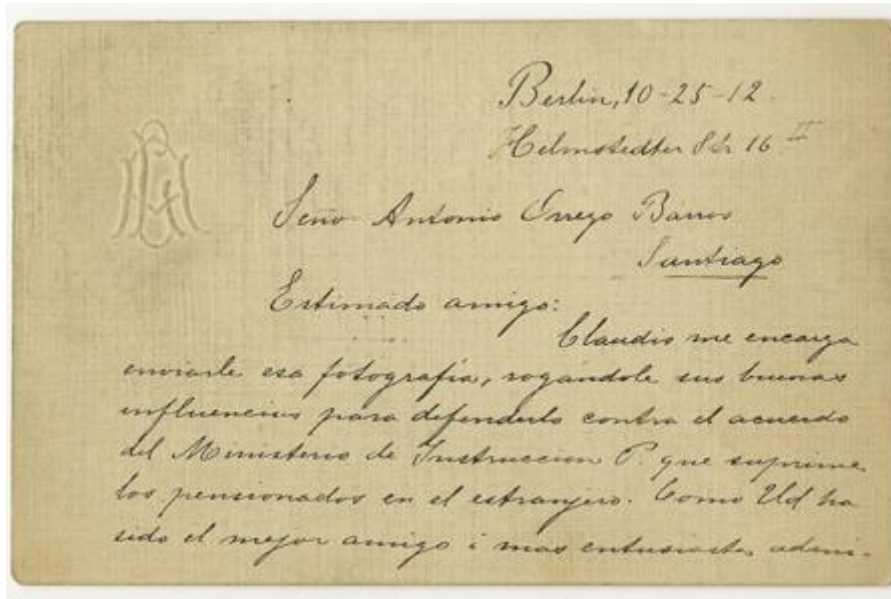 Berlin, 10-25-12
Helmstedter Str 16 II
Señor Antonio Orrego Barros
Santiago
Estimado amigo:
Claudio me encarga
enviarle esa fotografía, rogándole sus buenas
influencias para defenderlo contra el acuerdo
del Ministerio de Instruccion P. que suprime
los pensionados en el estranjero. Como Ud ha
sido el mejor amigo i mas entusiasta admi-